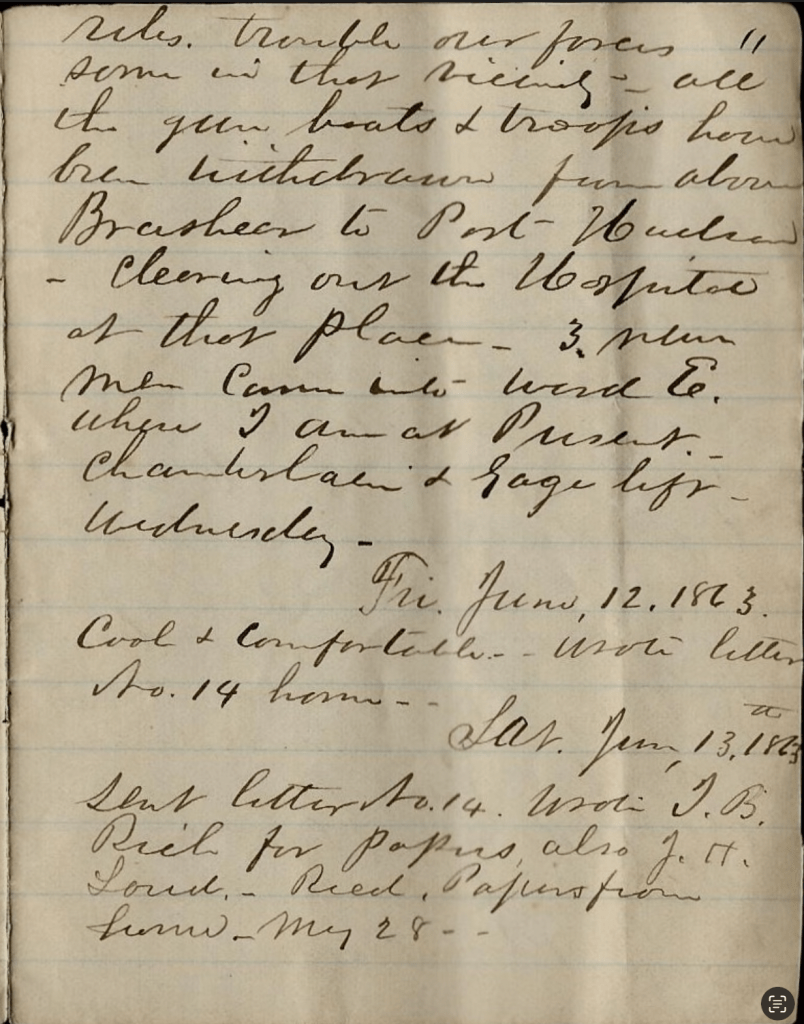 rebs. trouble our forces 11
some in that vicinity - all
the gun boats & troops have
been withdrawn from above
Brashear to Port Hudson
- Cleering out the Hospital
at that place - 3 new
men Came into ward E.
where I am at Present
Chamberlain & Gage left -
Wednesday -
Fri. June, 12. 1863.
Cool & Comfortable - - Wrote letter
No. 14 home - -
Sat. June, 13th, 1863
Sent letter No. 14. Wrote T. B.
Rich for papers, also J. H.
Loud. - Recd. Papers from
home - May 28 - -